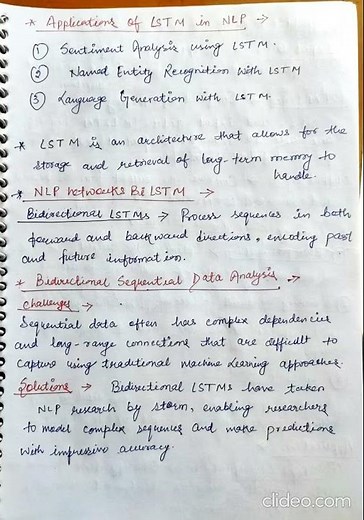 * Applications of LSTM in NLP →
① Sentiment Analysis using LSTM.
② Named Entity Recognition with LSTM
③ Language Generation with LSTM.
* LSTM is an architecture that allows for the
storage and retrieval of long-term memory to
handle.
* NLP networks BiLSTM →
Bidirectional LSTMs → Process sequences in both
forward and backward directions, encoding past
and future information.
* Bidirectional Sequential Data Analysis
Challenges →
Sequential data often has complex dependencies
and long-range connections that are difficult to
capture using traditional machine learning approaches.
Solutions → Bidirectional LSTMs have taken
NLP research by storm, enabling researchers
to model complex sequences and make predictions
with impressive accuracy.
clideo.com